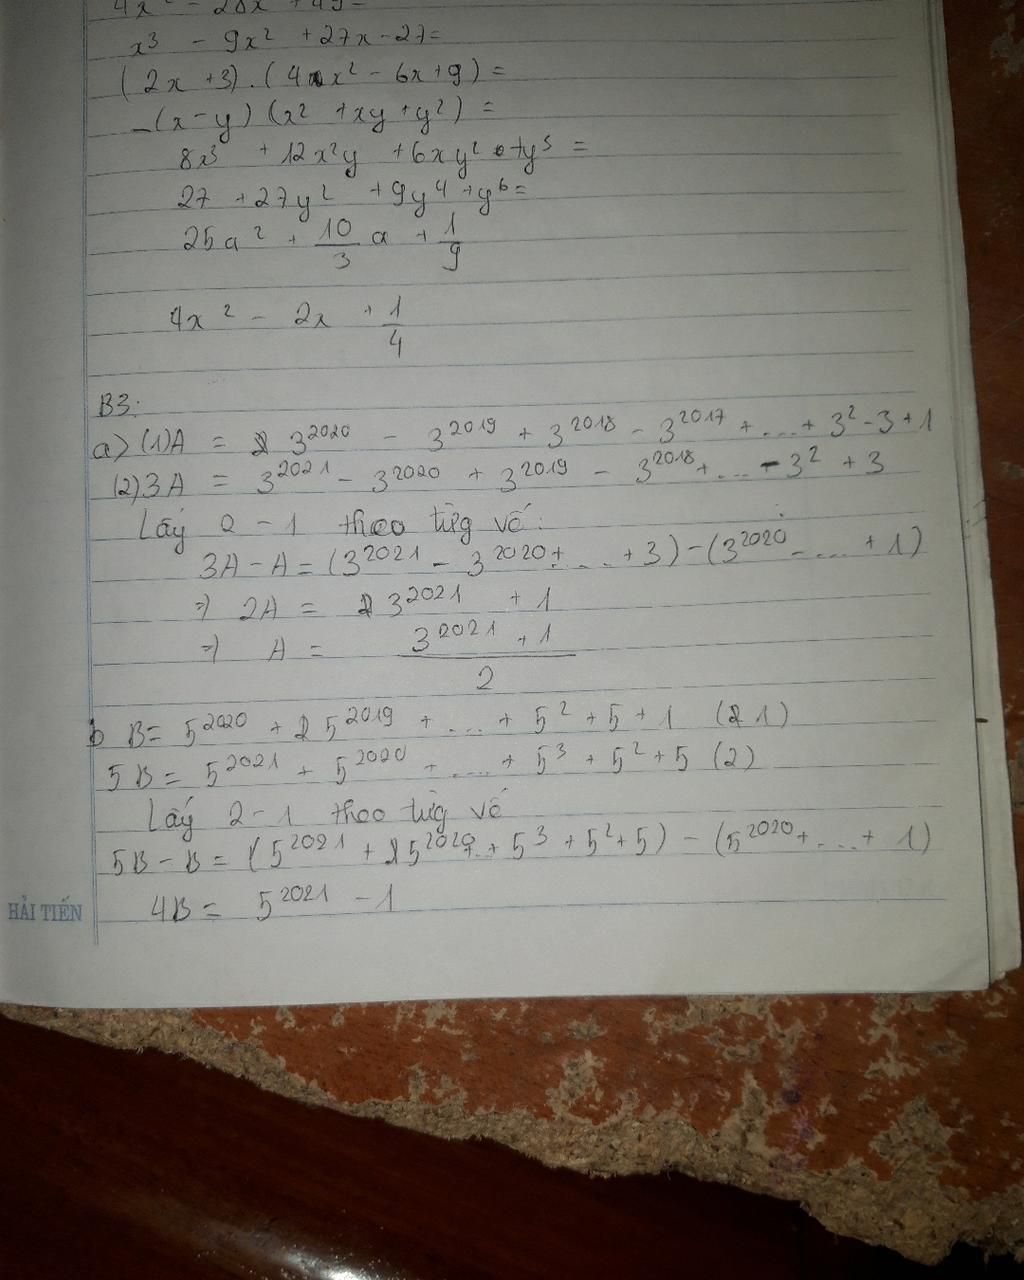 4x² - 28x + 49 =
x³ - 9x² + 27x - 27 =
(2x + 3) . (4x² - 6x + 9) =
-(x - y) (x² + xy + y²) =
8x³ + 12x²y + 6xy² + y³ =
27 + 27y² + 9y⁴ + y⁶ =
25a² + 10/3 a + 1/9
4x² - 2x + 1/4
B3:
a> (1) A = 3²⁰²⁰ - 3²⁰¹⁹ + 3²⁰¹⁸ - 3²⁰¹⁷ + ... + 3² - 3 + 1
(2) 3A = 3²⁰²¹ - 3²⁰²⁰ + 3²⁰¹⁹ - 3²⁰¹⁸ + ... - 3² + 3
Lấy 2 - 1 theo từg vế:
3A - A = (3²⁰²¹ - 3²⁰²⁰ + ... + 3) - (3²⁰²⁰ - ... + 1)
=> 2A = 3²⁰²¹ + 1
=> A = (3²⁰²¹ + 1)/2
b B = 5²⁰²⁰ + 5²⁰¹⁹ + ... + 5² + 5 + 1 (1)
5B = 5²⁰²¹ + 5²⁰²⁰ + ... + 5³ + 5² + 5 (2)
Lấy 2 - 1 theo từg vế
5B - B = (5²⁰²¹ + 5²⁰²⁰ ... + 5³ + 5² + 5) - (5²⁰²⁰ + ... + 1)
4B = 5²⁰²¹ - 1
HẢI TIẾN